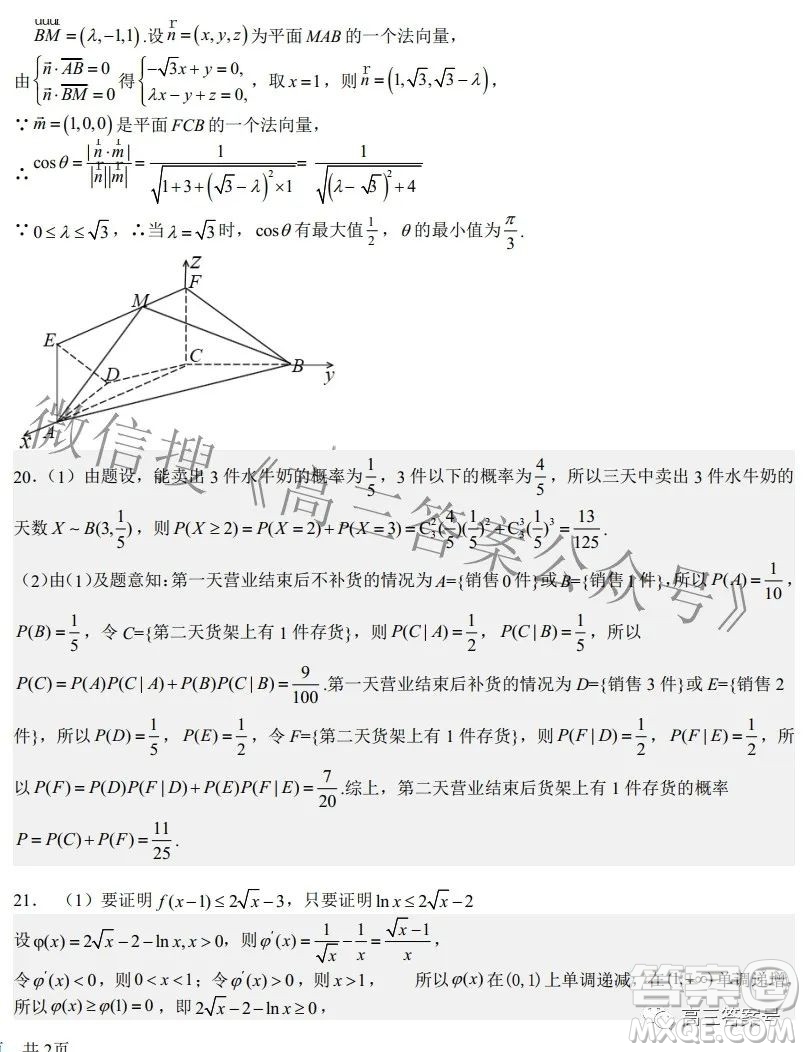 BM = (λ,-1,1).设 n = (x, y, z) 为平面 MAB 的一个法向量，
由{n·AB=0 n·BM=0 得{-√3x+y=0, λx-y+z=0, ，取 x=1，则 n = (1,√3,√3-λ)，
∵ m = (1,0,0) 是平面 FCB 的一个法向量，
∴ cosθ = |n·m| / |n||m| = 1/√(1+3+(√3-λ)²×1) = 1/√((λ-√3)²+4)
∵ 0≤λ≤√3，∴当 λ=√3 时，cosθ 有最大值 1/2，θ 的最小值为 π/3.
z
F
M
E
C
D
B
y
A
x
20.（1）由题设，能卖出 3 件水牛奶的概率为 1/5，3 件以下的概率为 4/5，所以三天中卖出 3 件水牛奶的
天数 X ~ B(3,1/5)，则 P(X≥2) = P(X=2)+P(X=3) = C₃²(4/5)(1/5)²+C₃³(1/5)³ = 13/125.
（2）由(1)及题意知：第一天营业结束后不补货的情况为 A={销售 0 件}或 B={销售 1 件},所以 P(A)=1/10，
P(B)=1/5，令 C={第二天货架上有 1 件存货}，则 P(C|A)=1/2，P(C|B)=1/5，所以
P(C)=P(A)P(C|A)+P(B)P(C|B)=9/100.第一天营业结束后补货的情况为 D={销售 3 件}或 E={销售 2
件}，所以 P(D)=1/5，P(E)=1/2，令 F={第二天货架上有 1 件存货}，则 P(F|D)=1/2，P(F|E)=1/2，所
以 P(F)=P(D)P(F|D)+P(E)P(F|E)=7/20.综上，第二天营业结束后货架上有 1 件存货的概率
P=P(C)+P(F)=11/25.
21. （1）要证明 f(x-1)≤2√x-3，只要证明 lnx≤2√x-2
设 φ(x)=2√x-2-lnx,x>0，则 φ'(x)=1/√x-1/x=(√x-1)/x，
令 φ'(x)<0，则 0<x<1；令 φ'(x)>0，则 x>1， 所以 φ(x) 在(0,1)上单调递减，在(1,+∞)单调递增，
所以 φ(x)≥φ(1)=0，即 2√x-2-lnx≥0，
共 2页
微信搜《高三答案公众号》
答案圈
高三答案号